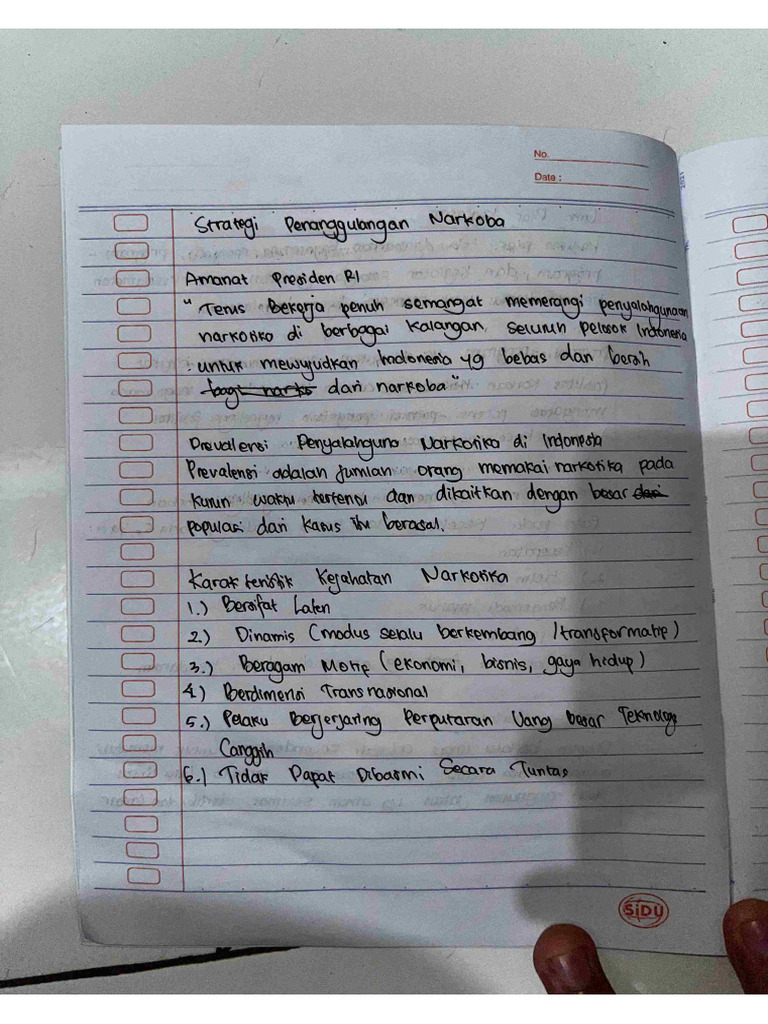 No.
Date :
Strategi Penanggulangan Narkoba
Amanat Presiden RI
"Terus Bekerja penuh semangat memerangi penyalahgunaan
narkotika di berbagai kalangan, seluruh pelosok Indonesia
untuk mewujudkan Indonesia yg bebas dan bersih
bagi narko dari narkoba"
Prevalensi Penyalahguna Narkotika di Indonesia
Prevalensi adalah jumlah orang memakai narkotika pada
kurun waktu tertentu dan dikaitkan dengan besar dari
populasi dari kasus itu berasal.
Karakteristik Kejahatan Narkotika
1.) Bersifat Laten
2.) Dinamis (modus selalu berkembang /transformatif)
3.) Beragam Motif (ekonomi, bisnis, gaya hidup)
4) Berdimensi Transnasional
5.) Pelaku Berjejaring Perputaran Uang besar Teknologi
Canggih
6.) Tidak Dapat Dibasmi Secara Tuntas
SiDU